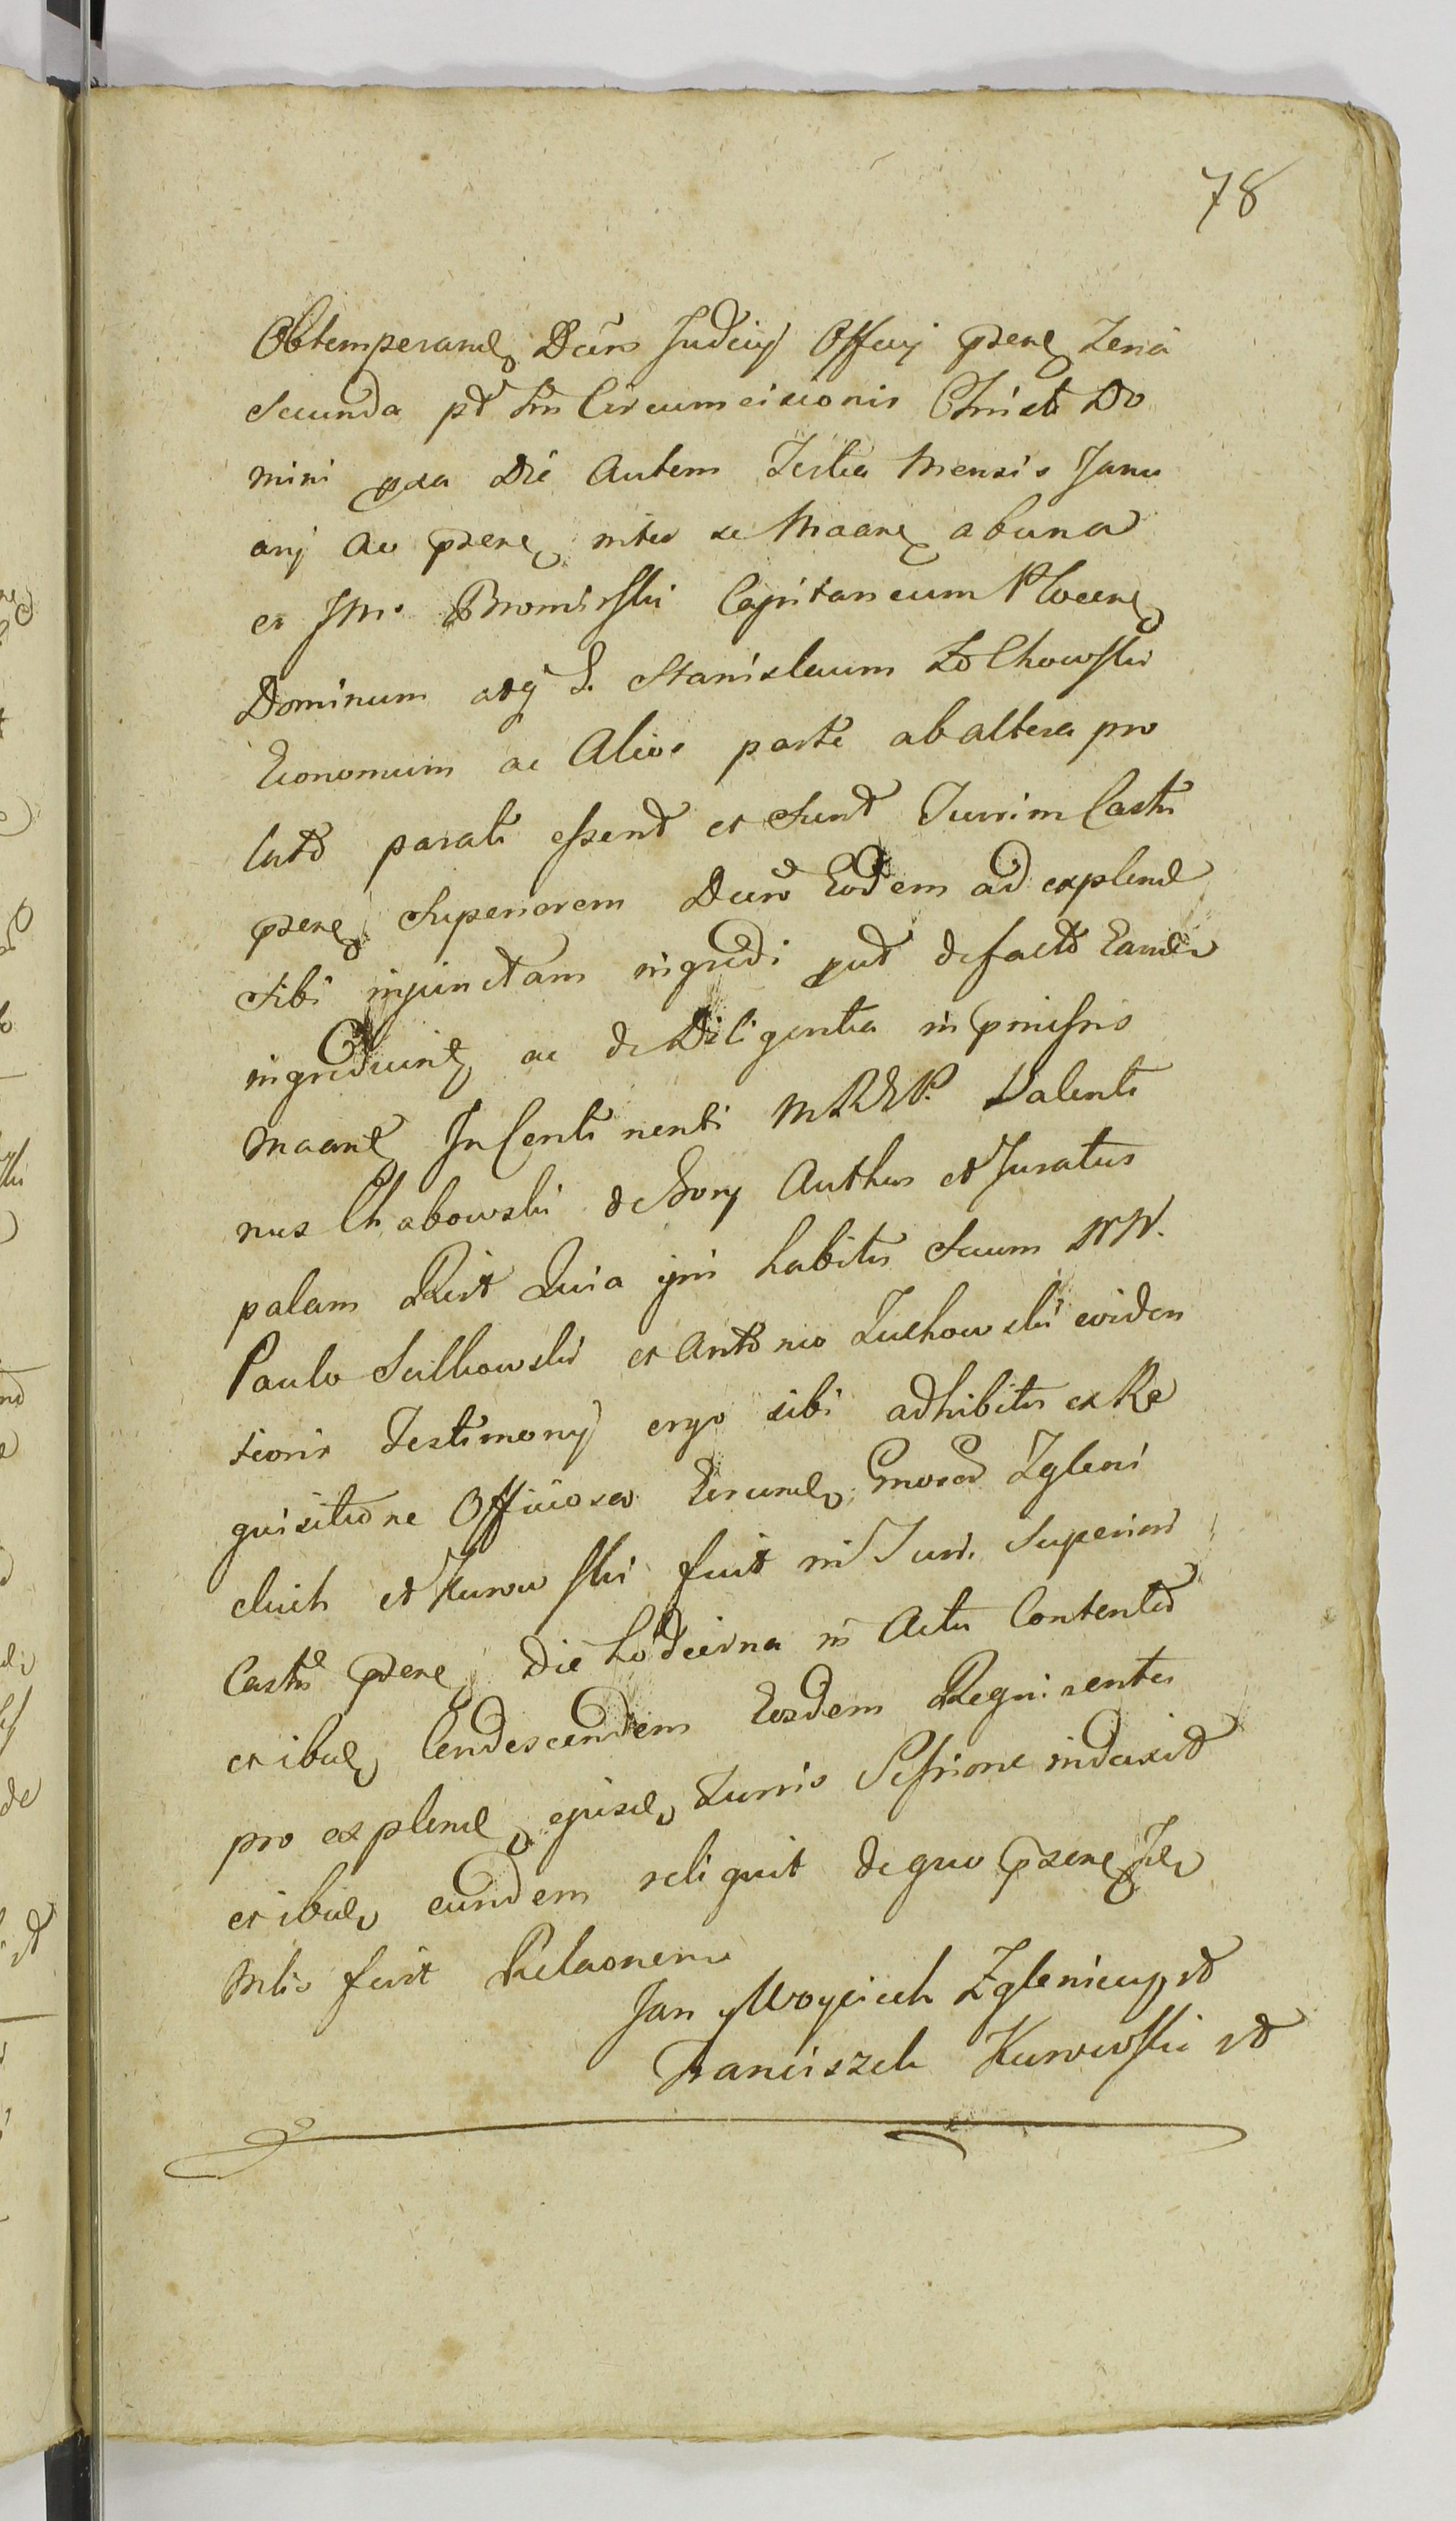 78
Obtemperand Dcům Judicij Officij psens Feria
Secunda pt fm Circumcisionis Christi Do
mini pxa Die Autem Tertia Mensis Janu
arij Ao psen inter se Maane ab una
et Jmo Bromirski Capitaneum Plocens
Dominum atq G. Stanislaum Żółchowski
Economum ac Alios parte ab altera pro
lato parati essent et sunt Turrim Castri
psens Superiorem Dcŭo Eodem ad explend
sibi injunctam ingredi put de facto Eamdem
ingrediunt ac de Diligentia in pmissis
maant In Continenti MREP. Valenti
nus Chabowski de Bory Authus et Juratus
palam Rlit Quia ipse habitis secum NN.
Paulo Sulkowski et Antonio Żuchowski eviden
tioris Testimonij ergo sibi adhibitis ex Re
quisitione Officiosa Eorund Gnosor Zgleni
ckich et Kurowski fuit in Turri Superiori
Castri psens Die hodierna in Actu Contento
et ibid Condescendem Eosdem Requirentes
pro explend ejusd Turris Sessione induxit
et ibid eundem reliquit de quo psens Id
Mlis fecit Relaonem
Jan y Woyciech Zgleniccy
Franciszek Kurowski